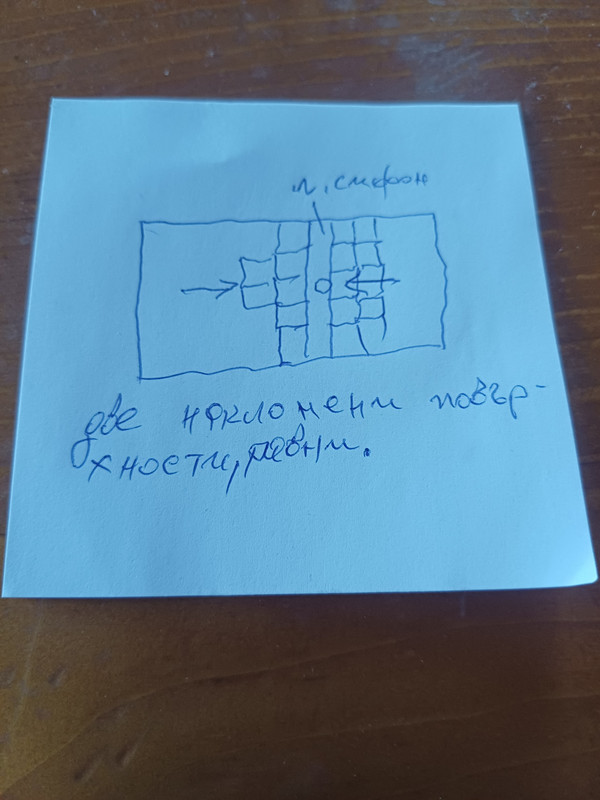 л. сифон
две наклонени повър-
хности, равни.